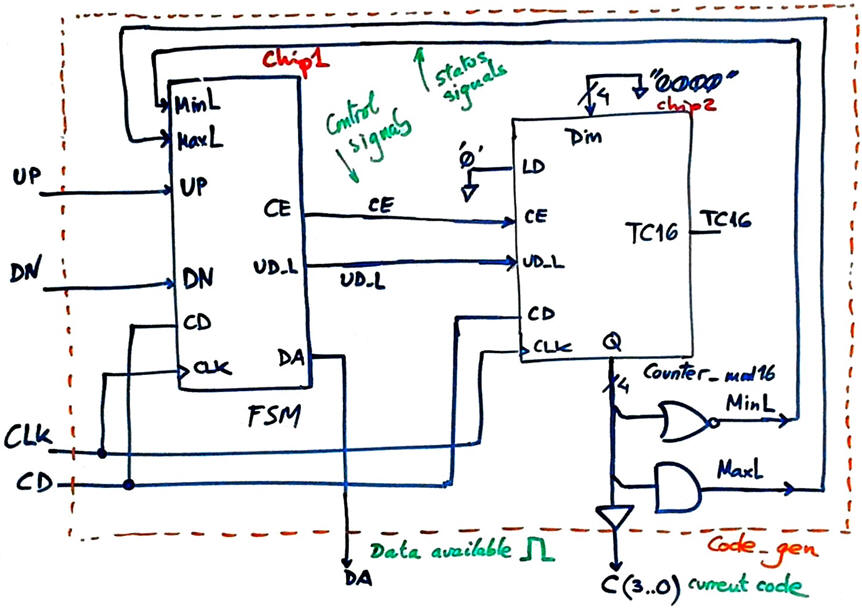 Chip1
status
signals
Control
signals
4
"0000"
chip2
MinL
MaxL
UP
UP
DN
DN
CD
CLK
CE
UD_L
DA
FSM
CE
UD_L
'0'
Din
LD
CE
UD_L
CD
CLK
TC16
TC16
Q
4
Counter_mod16
MinL
MaxL
CLK
CD
Data available
DA
Code_gen
C(3..0) current code